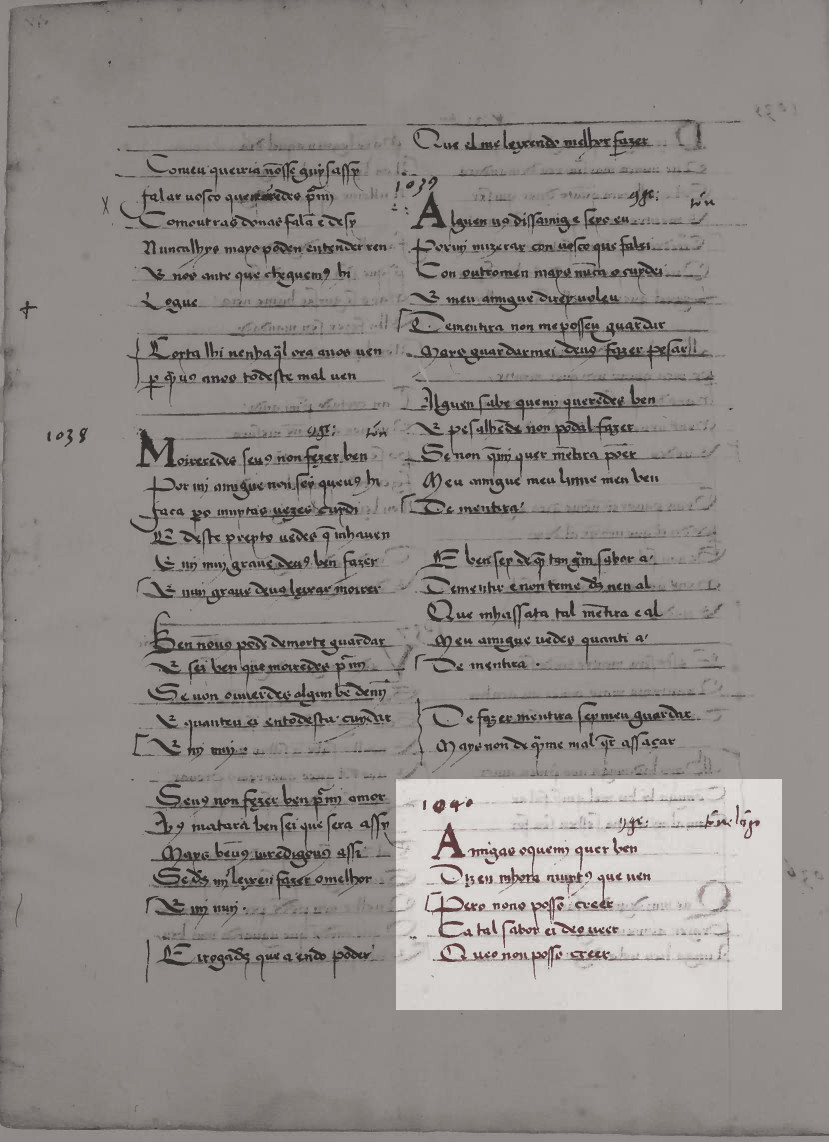 Comeu queiria nosse guysassy
falar uosco que redes pmi
Comoutras donas fala e desy
Nuncalhys mays poden entender ren
E nos ante que cheguemꝰ hi
Logue
Corta lhi nenha ql ora anos uen
p q uꝰ anos todeste mal uen
1038
Moireredes seuꝰ non fezer ben
Por mi amigue non sey queuꝰ hi
faca po muytas uezes cuydi
E deste preyto uedes q mhauen
E mi muy graue deuꝰ ben fazer
E muy graue deuꝰ leixar moirer
Ben nonꝰ pode demorte guardar
E sei ben que moiredes pmi
Se non ouuerdes algun be demi
E quanteu ei entodesta cuydar
E mi mui
Seuꝰ non fezer ben pmi amor
Hyꝰ matara ben sei que sera assy
Mays beuꝰ iuredigouꝰ assi
Se ds mi leixen fazer omelhor
E mi mui.
E rogads que a endo poder
Que el me leixendo melhor fazer
1039
Alguen uꝰ dissamig e sero eu
Por mi mizcrar con uosco que falei
Con outromen mays nuca o cuydei
E meu amigue direyuoleu
De mentira non me posseu guardar
Mays guardarmei deuꝰ fazer pesar
Alguen sabe quemi queredes ben
E pesalhede non podal fazer
Se non qmi quer metira poer
Meu amigue meu lume meu ben
De mentira
E ben sey de q tan gram sabor a
De mentir e non teme ds nen al
Que mhassaca tal metira e al
Meu amigue uedes quanti a
De mentira.
De fazer mentira seymeu guardar
Mays non de qme mal qr assacar
1040
Amigas oquemi quer ben
Dizen mhora muytꝰ que uen
Pero nono posso creer
Ca tal sabor ei deo ueer
Queo non posso creer